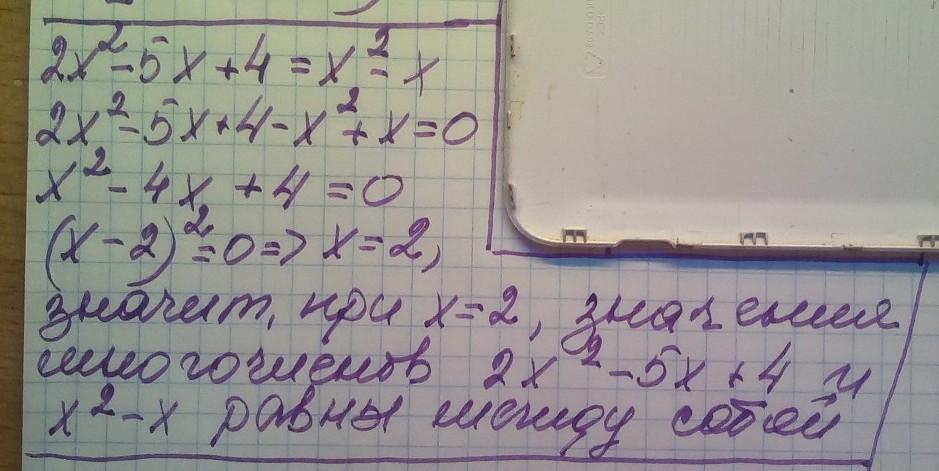 2x² - 5x + 4 = x² - x
2x² - 5x + 4 - x² + x = 0
x² - 4x + 4 = 0
(x - 2)² = 0 => x = 2,
значит, при x = 2, значения
многочленов 2x² - 5x + 4 и
x² - x равны между собой